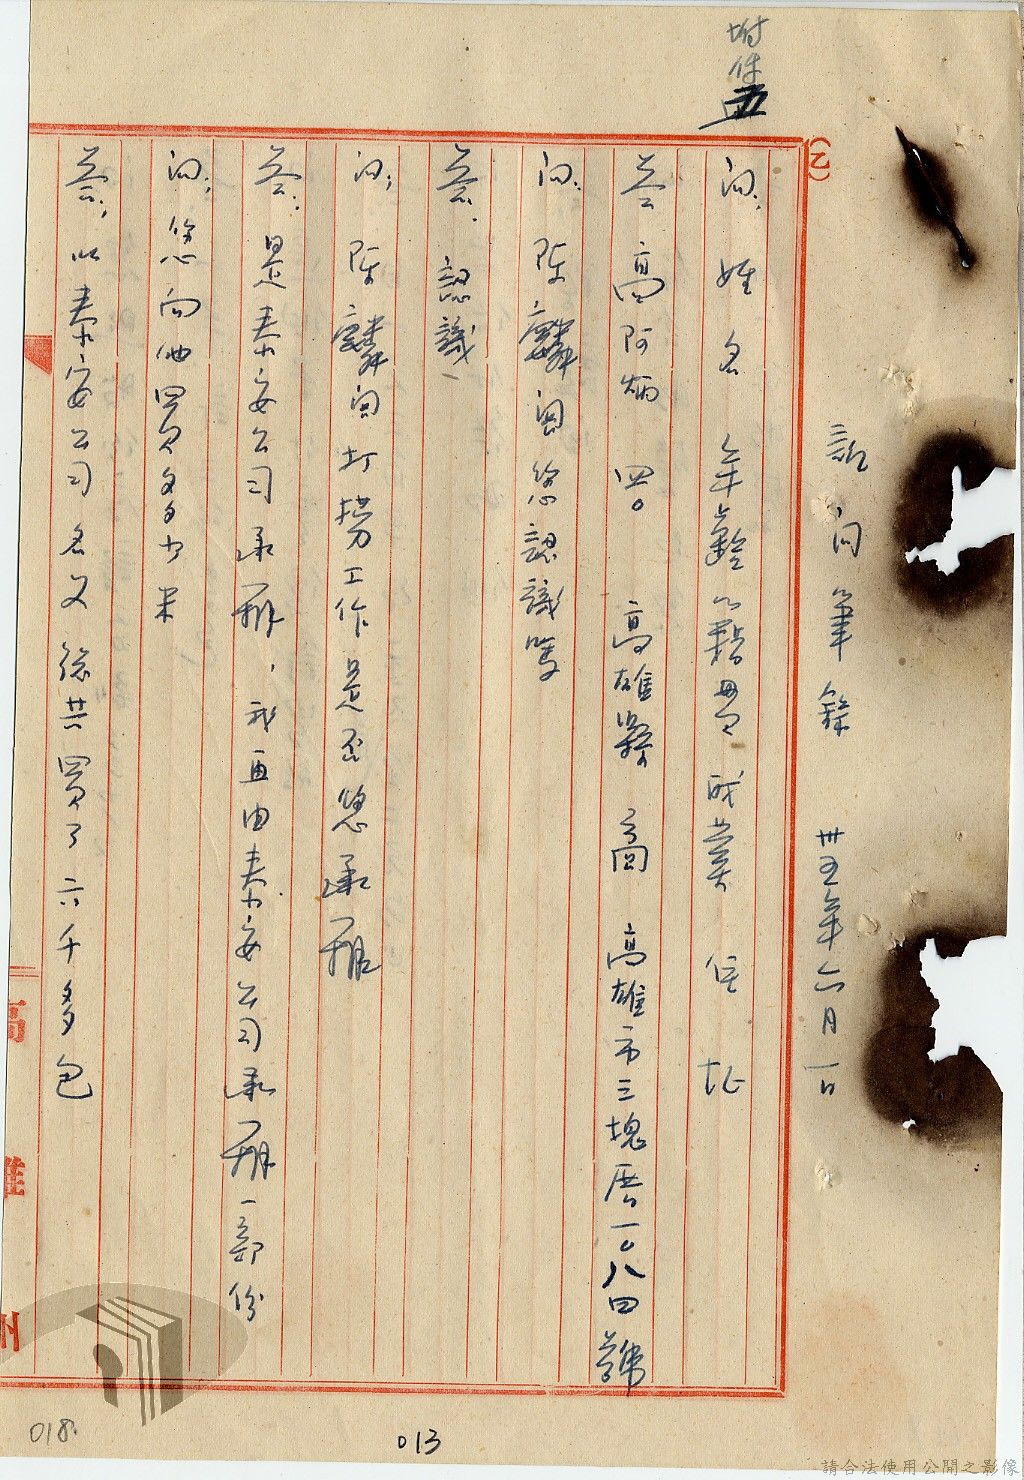 附件五
(乙)
訊問筆錄 卅五年六月一日
問:姓名年齡籍貫職業住址
答 高阿炳 四〇 高雄縣 商 高雄市三塊厝一〇八四號
問:陳麟閣您認識嗎
答:認識
問:陳麟閣打撈工作是否您承辦
答:是泰安公司承辦,我再由泰安公司承辦一部份
問:您向他買多少米
答:以泰安公司名义総共買了六千多包
高雄州
018
013
請合法使用公開之影像